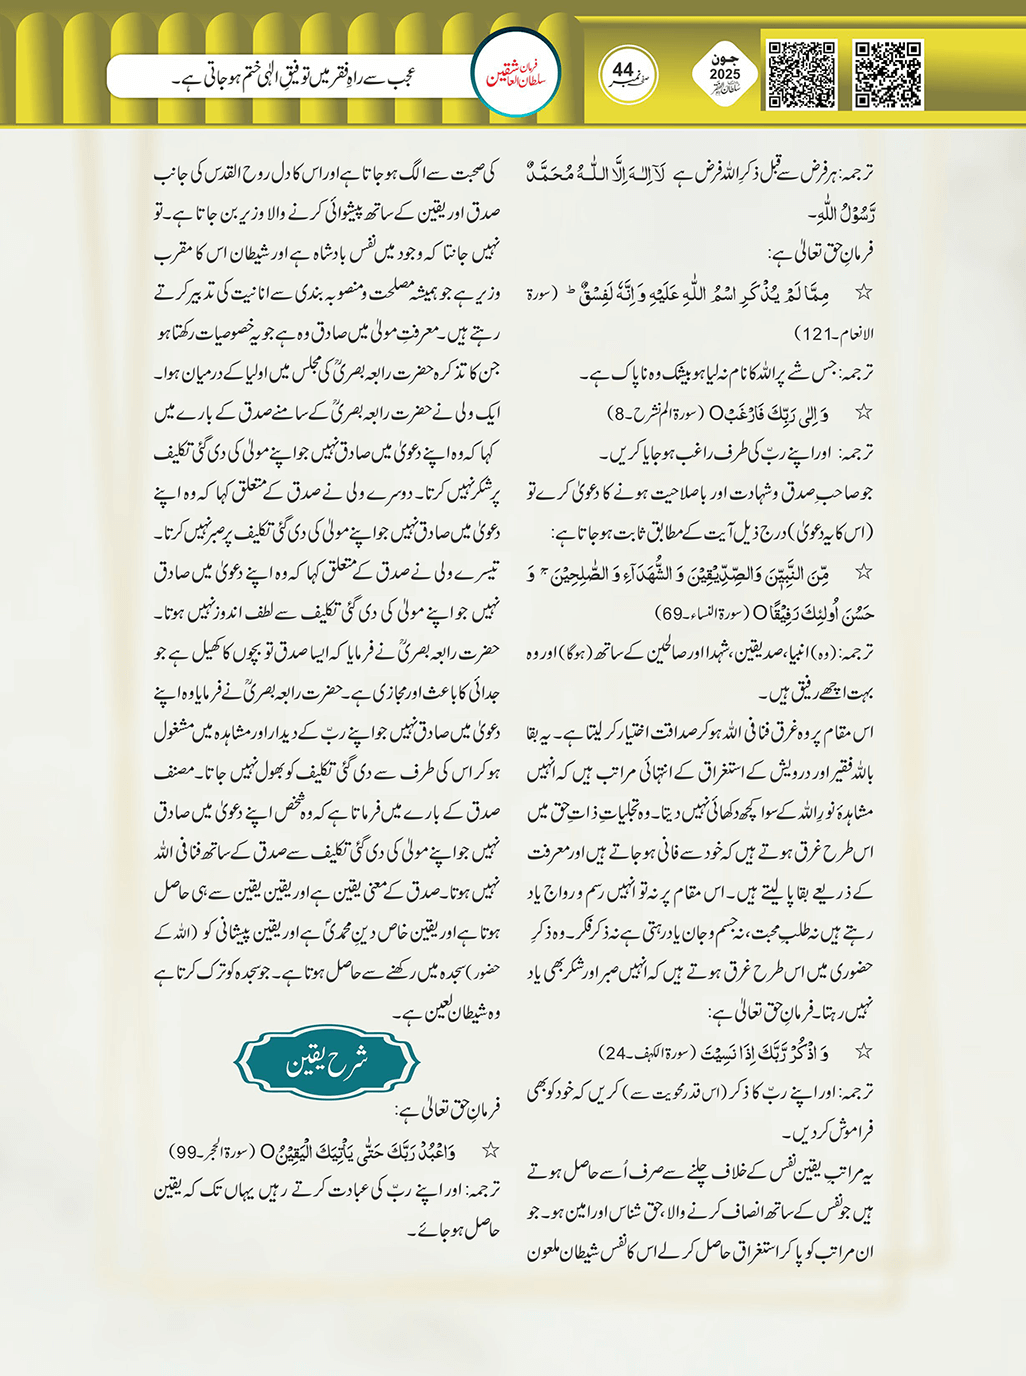 عجب سے راہِ فقر میں توفیقِ الٰہی ختم ہو جاتی ہے۔
فرمان سلطان العاشقین
صفحہ نمبر 44
جون 2025
سلطان الفقر
ترجمہ: ہر فرض سے قبل ذکر اللہ فرض ہے لَآ اِلٰہَ اِلَّا اللّٰہُ مُحَمَّدٌ
رَّسُوْلُ اللّٰہِ۔
فرمانِ حق تعالیٰ ہے:
☆ مِمَّا لَمْ یُذْکَرِ اسْمُ اللّٰہِ عَلَیْہِ وَ اِنَّہٗ لَفِسْقٌ ط (سورۃ
الانعام۔121)
ترجمہ: جس شے پر اللہ کا نام نہ لیا ہو بیشک وہ ناپاک ہے۔
☆ وَ اِلٰی رَبِّکَ فَارْغَبْO (سورۃ الم نشرح۔8)
ترجمہ: اور اپنے ربّ کی طرف راغب ہو جایا کریں۔
جو صاحبِ صدق و شہادت اور باصلاحیت ہونے کا دعویٰ کرے تو
(اس کا یہ دعویٰ) درج ذیل آیت کے مطابق ثابت ہو جاتا ہے:
☆ مِّنَ النَّبِیّٖنَ وَالصِّدِّیْقِیْنَ وَ الشُّھَدَآءِ وَ الصّٰلِحِیْنَ ج وَ
حَسُنَ اُولٰئِکَ رَفِیْقًاO (سورۃ النساء۔69)
ترجمہ: (وہ) انبیا، صدیقین، شہدا اور صالحین کے ساتھ (ہوگا) اور وہ
بہت اچھے رفیق ہیں۔
اس مقام پر وہ غرق فنا فی اللہ ہو کر صداقت اختیار کر لیتا ہے۔ یہ بقا
باللہ فقیر اور درویش کے استغراق کے انتہائی مراتب ہیں کہ انہیں
مشاہدۂ نورِ اللہ کے سوا کچھ دکھائی نہیں دیتا۔ وہ تجلیاتِ ذاتِ حق میں
اس طرح غرق ہوتے ہیں کہ خود سے فانی ہو جاتے ہیں اور معرفت
کے ذریعے بقا پا لیتے ہیں۔ اس مقام پر نہ تو انہیں رسم و رواج یاد
رہتے ہیں نہ طلبِ محبت، نہ جسم و جان یاد رہتی ہے نہ ذکر فکر۔ وہ ذکرِ
حضوری میں اس طرح غرق ہوتے ہیں کہ انہیں صبر اور شکر بھی یاد
نہیں رہتا۔ فرمانِ حق تعالیٰ ہے:
☆ وَ اذْکُرْ رَّبَّکَ اِذَا نَسِیْتَ (سورۃ الکہف۔24)
ترجمہ: اور اپنے ربّ کا ذکر (اس قدر محویت سے) کریں کہ خود کو بھی
فراموش کر دیں۔
یہ مراتبِ یقین نفس کے خلاف چلنے سے صرف اُسے حاصل ہوتے
ہیں جو نفس کے ساتھ انصاف کرنے والا، حق شناس اور امین ہو۔ جو
ان مراتب کو پا کر استغراق حاصل کر لے اس کا نفس شیطان ملعون
کی صحبت سے الگ ہو جاتا ہے اور اس کا دل روح القدس کی جانب
صدق اور یقین کے ساتھ پیشوائی کرنے والا وزیر بن جاتا ہے۔ تو
نہیں جانتا کہ وجود میں نفس بادشاہ ہے اور شیطان اس کا مقرب
وزیر ہے جو ہمیشہ مصلحت و منصوبہ بندی سے انانیت کی تدبیر کرتے
رہتے ہیں۔ معرفتِ مولیٰ میں صادق وہ ہے جو یہ خصوصیات رکھتا ہو
جن کا تذکرہ حضرت رابعہ بصریؒ کی مجلس میں اولیا کے درمیان ہوا۔
ایک ولی نے حضرت رابعہ بصریؒ کے سامنے صدق کے بارے میں
کہا کہ وہ اپنے دعویٰ میں صادق نہیں جو اپنے مولیٰ کی دی گئی تکلیف
پر شکر نہیں کرتا۔ دوسرے ولی نے صدق کے متعلق کہا کہ وہ اپنے
دعویٰ میں صادق نہیں جو اپنے مولیٰ کی دی گئی تکلیف پر صبر نہیں کرتا۔
تیسرے ولی نے صدق کے متعلق کہا کہ وہ اپنے دعویٰ میں صادق
نہیں جو اپنے مولیٰ کی دی گئی تکلیف سے لطف اندوز نہیں ہوتا۔
حضرت رابعہ بصریؒ نے فرمایا کہ ایسا صدق تو بچوں کا کھیل ہے جو
جدائی کا باعث اور مجازی ہے۔ حضرت رابعہ بصریؒ نے فرمایا وہ اپنے
دعویٰ میں صادق نہیں جو اپنے ربّ کے دیدار اور مشاہدہ میں مشغول
ہو کر اس کی طرف سے دی گئی تکلیف کو بھول نہیں جاتا۔ مصنف
صدق کے بارے میں فرماتا ہے کہ وہ شخص اپنے دعویٰ میں صادق
نہیں جو اپنے مولیٰ کی دی گئی تکلیف سے صدق کے ساتھ فنا فی اللہ
نہیں ہوتا۔ صدق کے معنی یقین ہے اور یقین یقین سے ہی حاصل
ہوتا ہے اور یقین خاص دینِ محمدیؐ ہے اور یقین پیشانی کو (اللہ کے
حضور) سجدہ میں رکھنے سے حاصل ہوتا ہے۔ جو سجدہ کو ترک کرتا ہے
وہ شیطان لعین ہے۔
شرح یقین
فرمانِ حق تعالیٰ ہے:
☆ وَاعْبُدْ رَبَّکَ حَتّٰی یَاْتِیَکَ الْیَقِیْنُO (سورۃ الحجر۔99)
ترجمہ: اور اپنے ربّ کی عبادت کرتے رہیں یہاں تک کہ یقین
حاصل ہو جائے۔